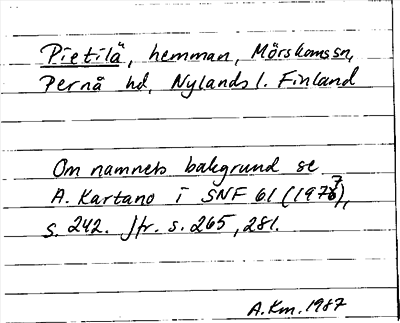 Pietilä, hemman, Mörskoms sn,
Pernå hd, Nylands l. Finland
Om namnets bakgrund se
A. Kartano i SNF 61 (1977),
s. 242. Jfr. s. 265, 281.
A.Km. 1987